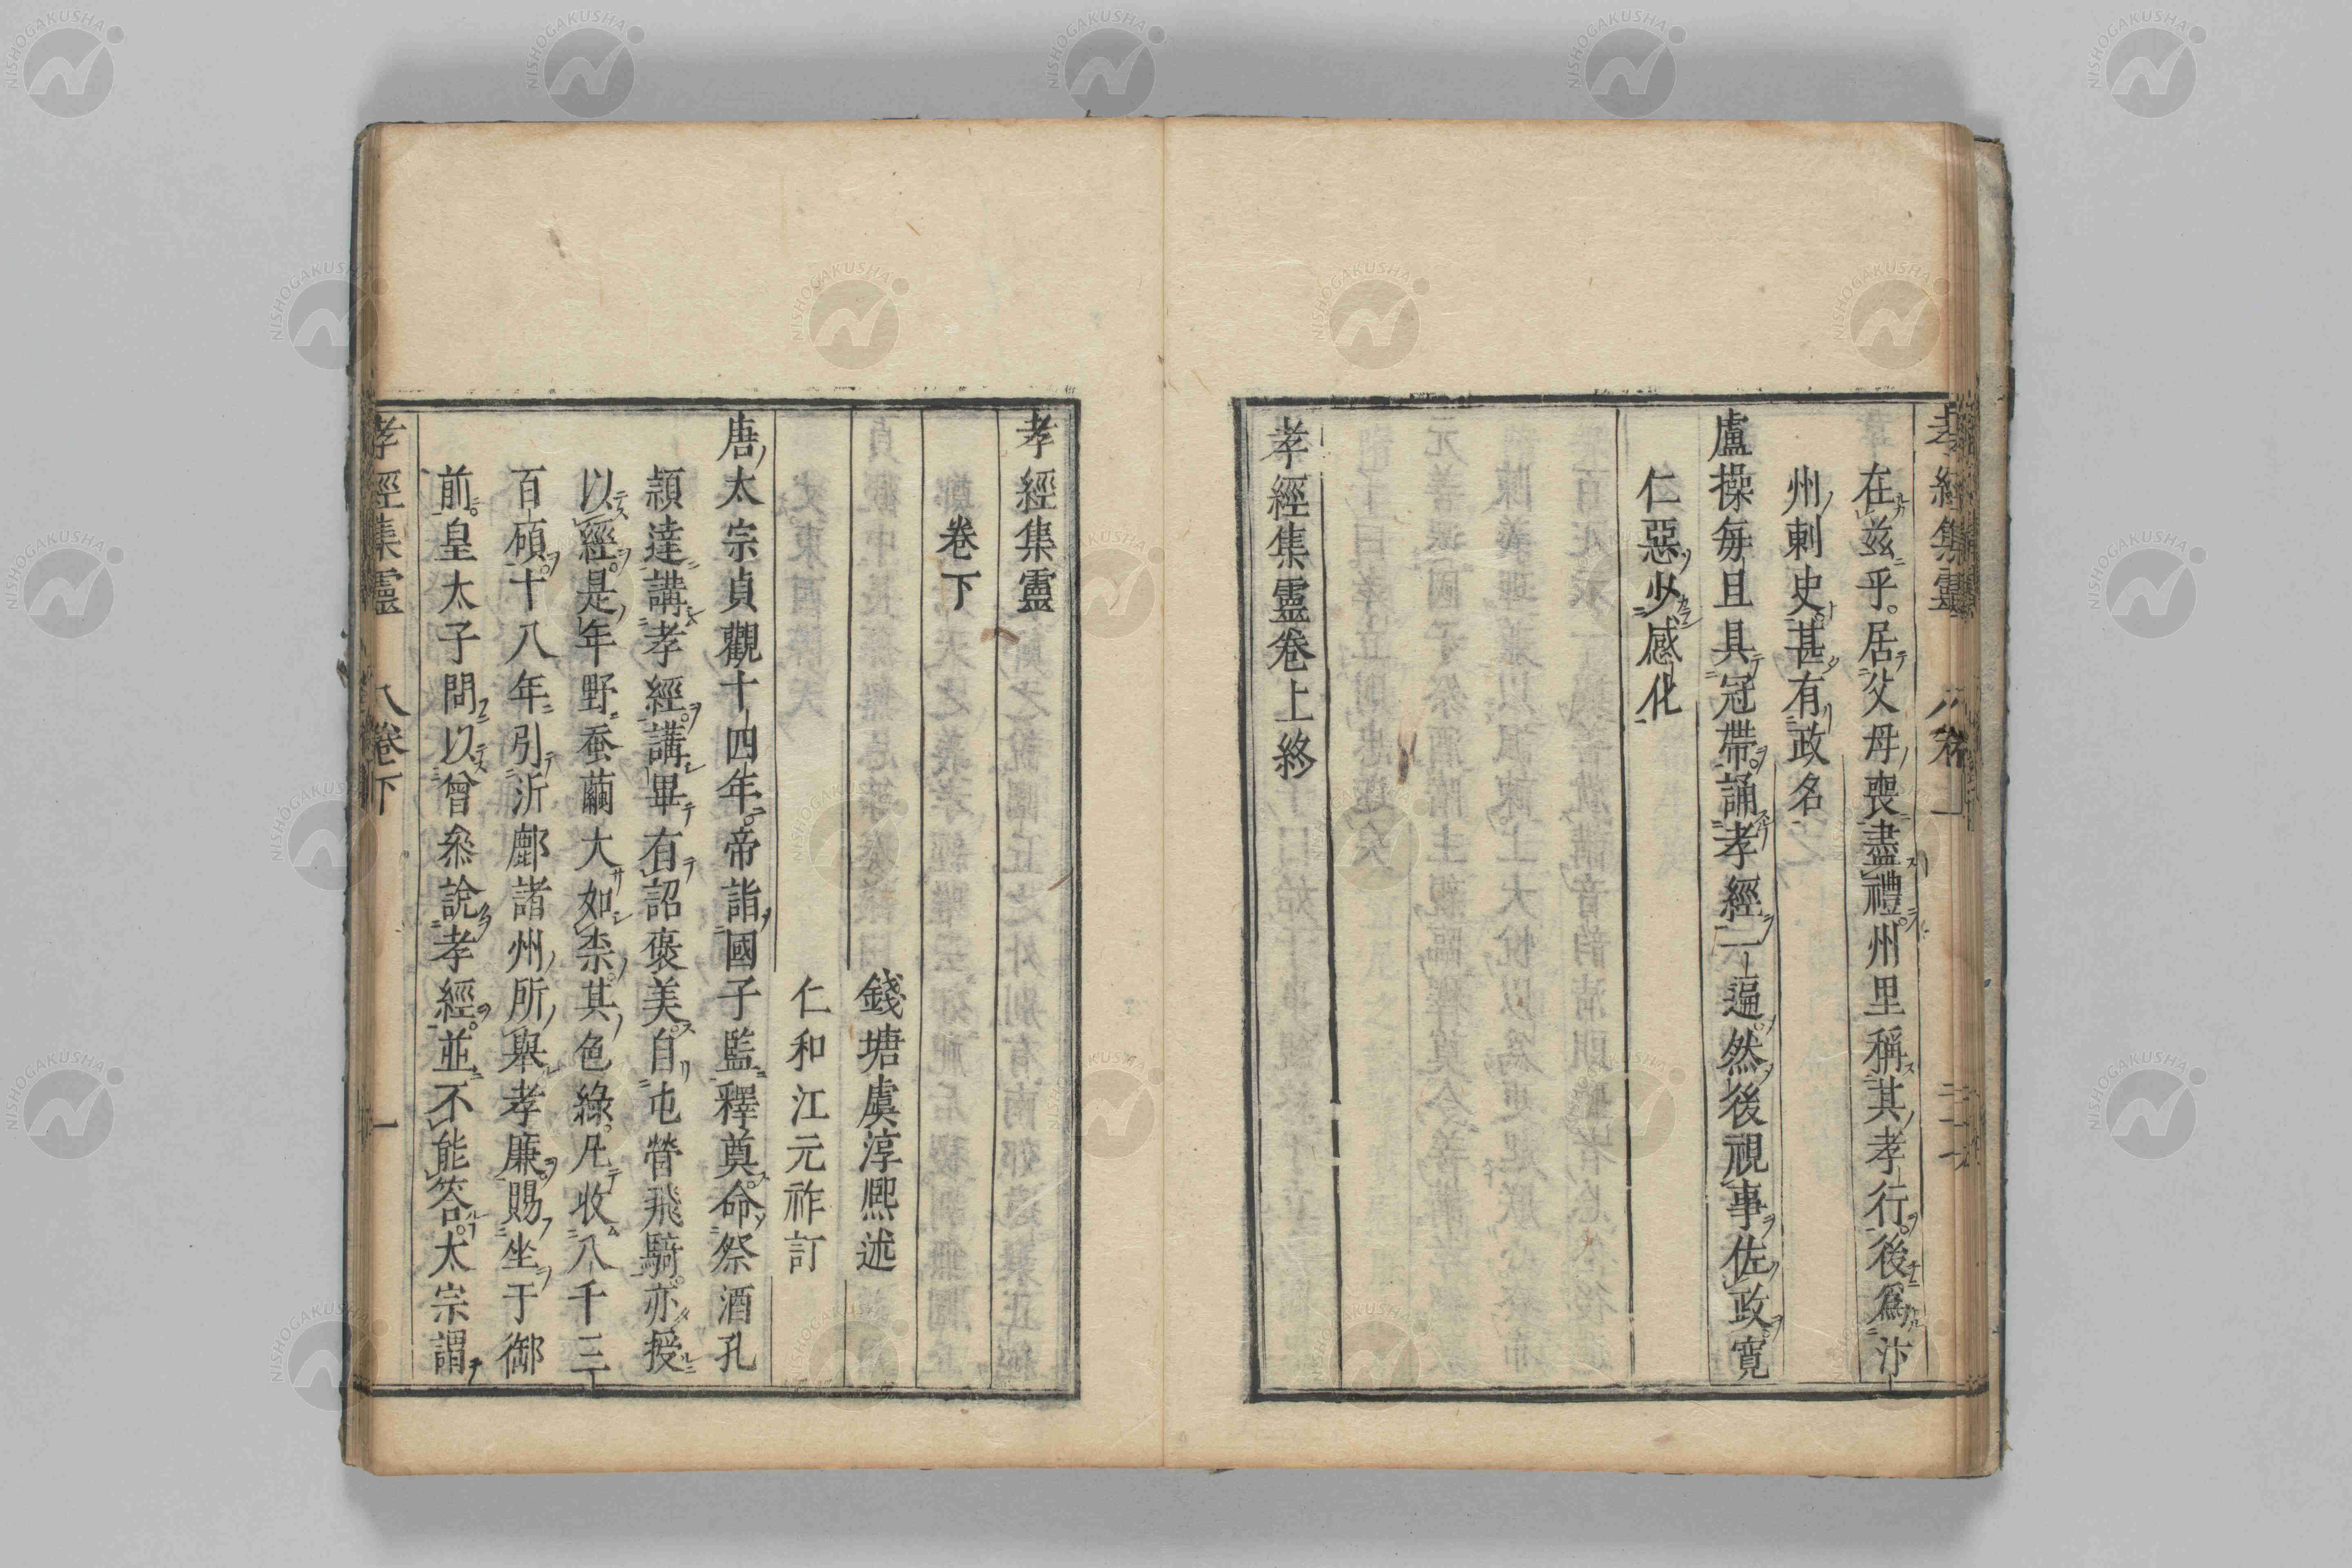 在茲乎。居父母喪盡禮州里稱其孝行。後爲汴
州刺史甚有政名
盧操毎且具冠帶誦孝經一遍然後視事佐政寛
仁惡少感化
孝經集靈卷上終
孝經集靈
卷下
錢塘虞淳熙述
仁和江元祚訂
唐太宗貞觀十四年帝詣國子監釋奠命祭酒孔
頴達講孝經講畢有詔褒美自屯營飛騎亦授
以經是年野蚕繭大如柰其色綠。凡收八千三
百碩。十八年引沂鄜諸州所舉孝廉賜坐于御
前。皇太子問以曾叅說孝經並不能答。太宗謂
孝經集靈 卷下 一
NISHOGAKUSHA